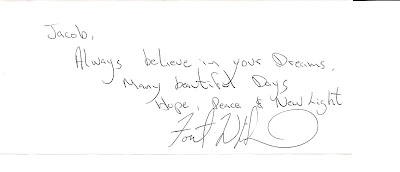 Jacob,
Always believe in your Dreams,
Many beautiful Days
Hope, Peace & New Light